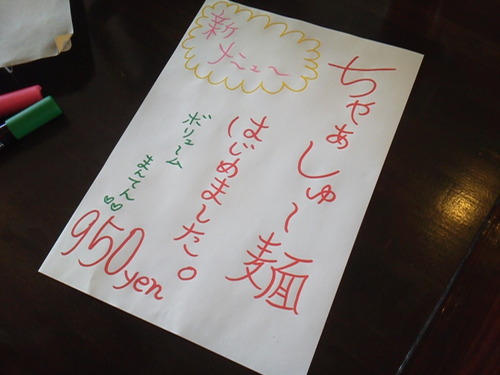 新
メニュー
ちゃぁしゅ〜麺
はじめました。
ボリューム
まんてん♡♡
950yen